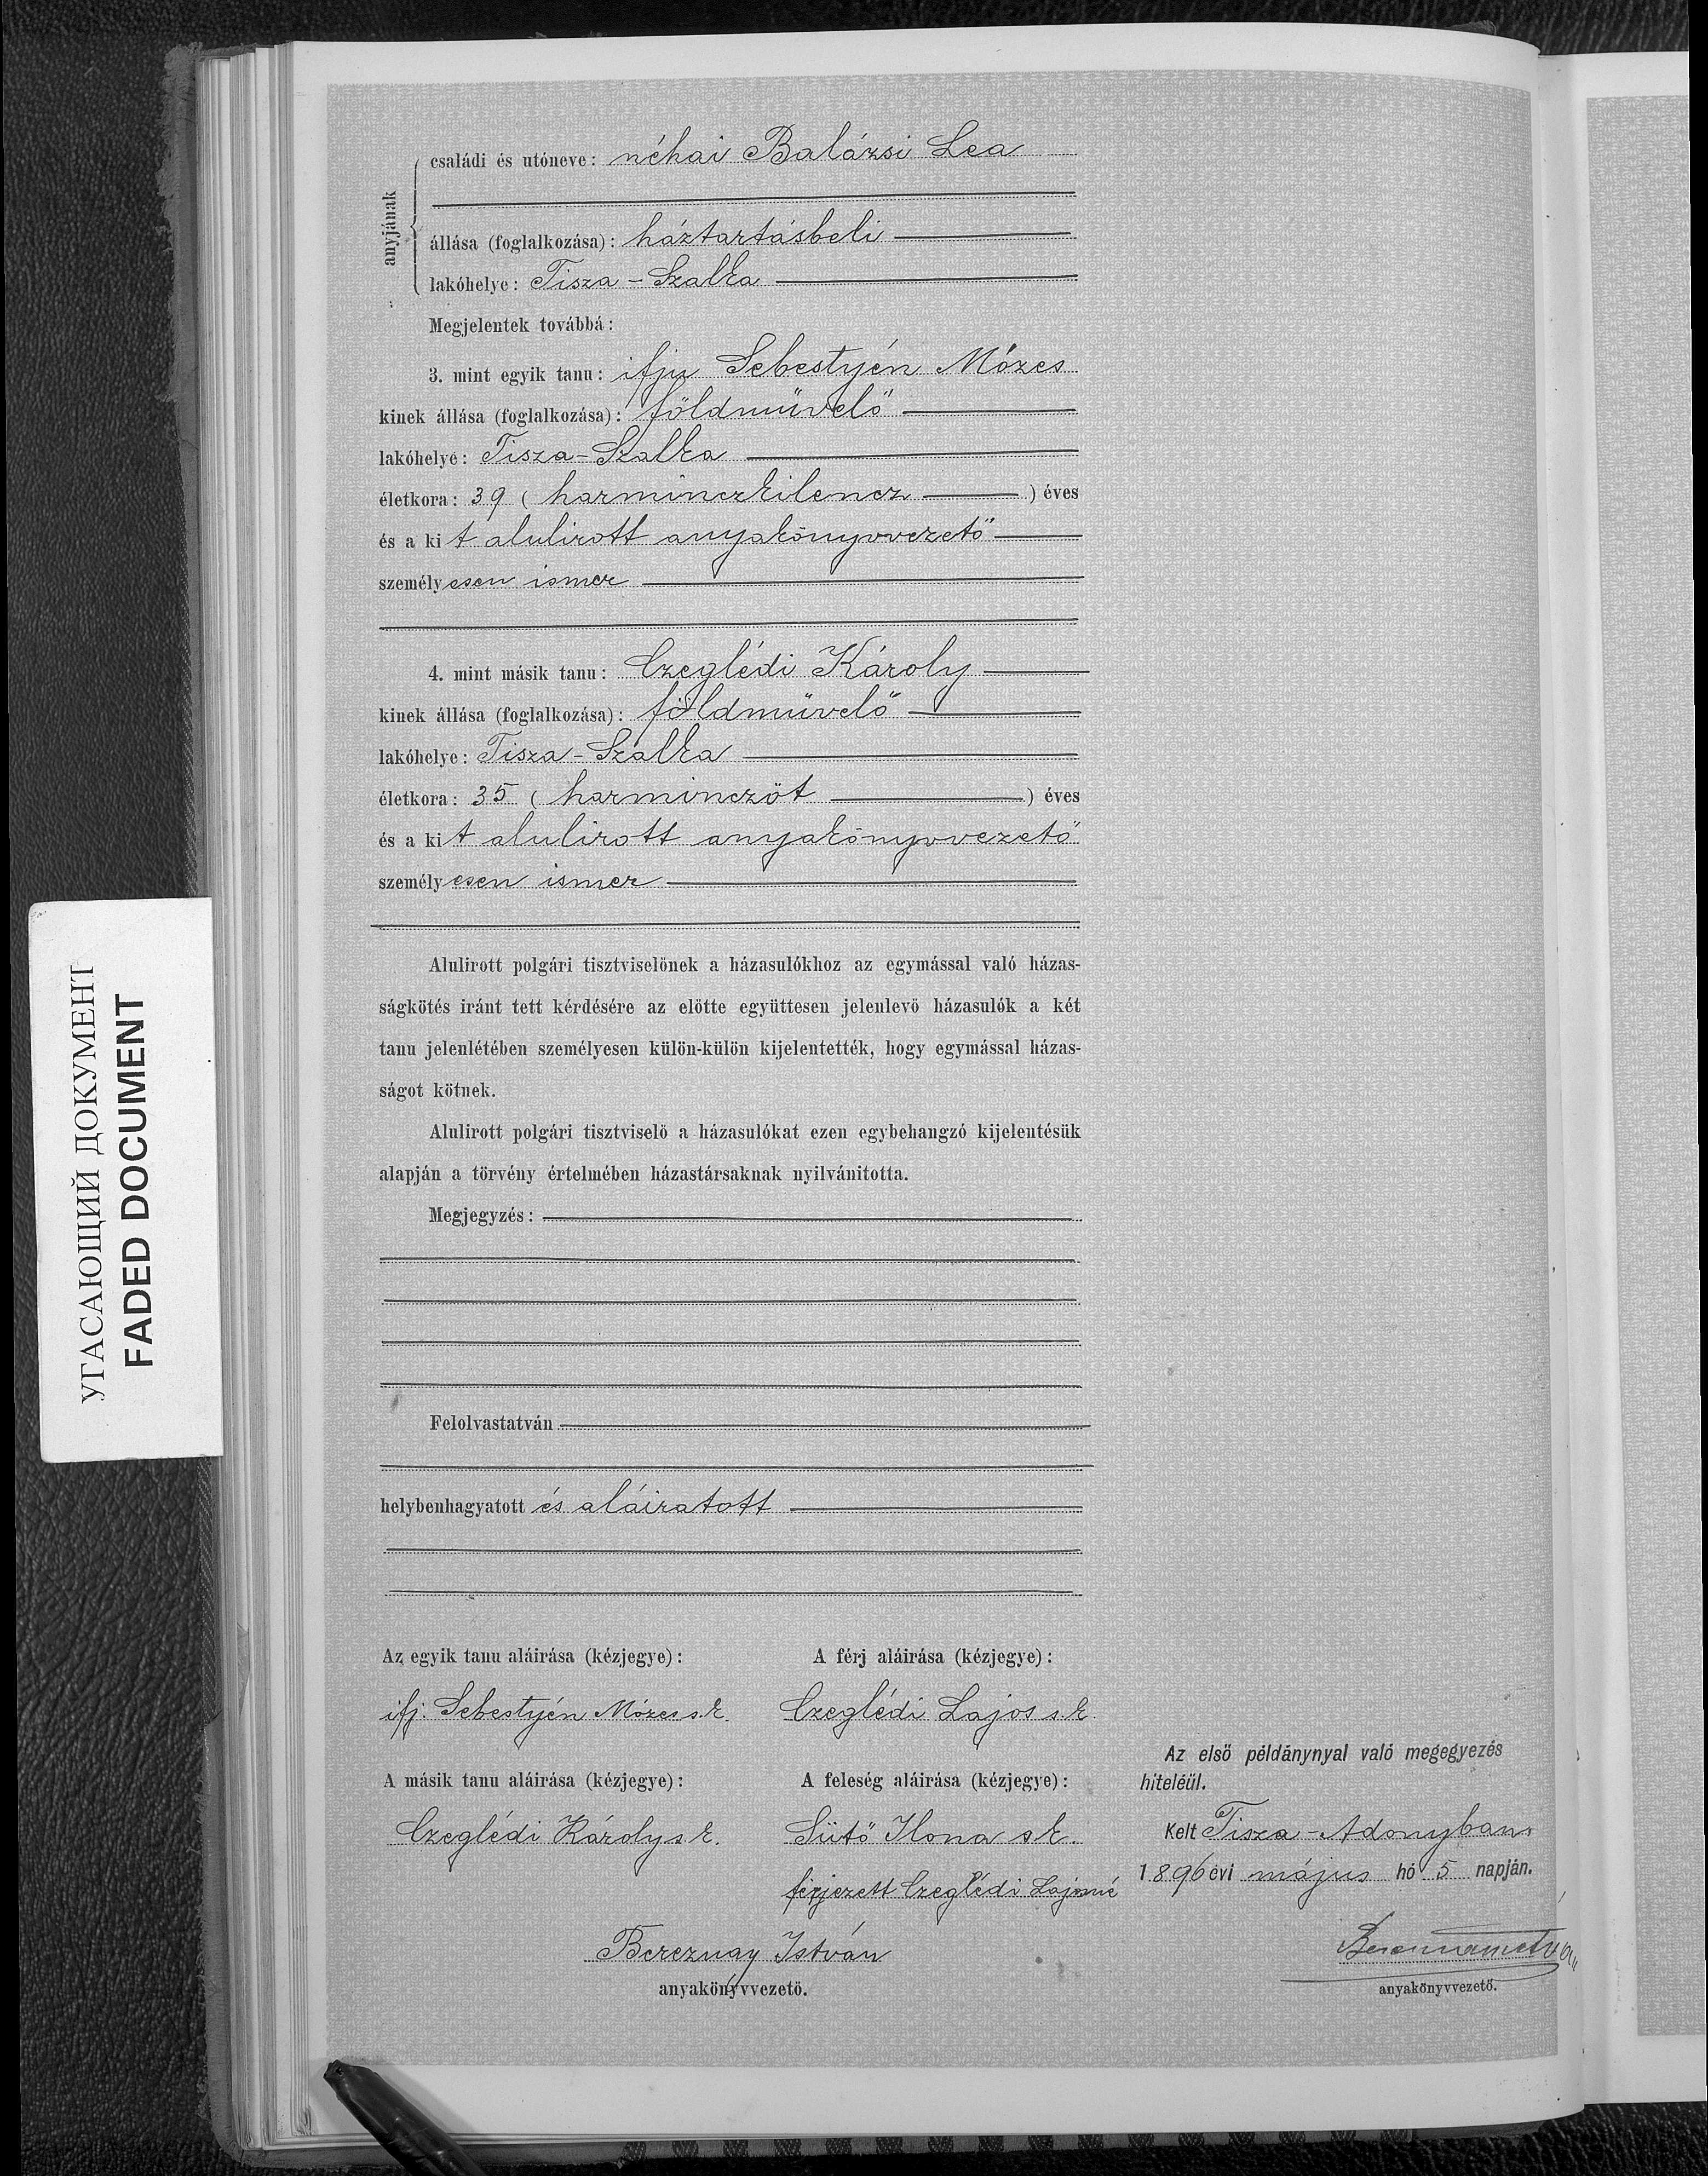 anyjának
családi és utóneve: néhai Balázsi Lea
állása (foglalkozása): háztartásbeli
lakóhelye: Tisza-Szalka
Megjelentek továbbá:
3. mint egyik tanu: ifju Sebestyén Mózes
kinek állása (foglalkozása): földmüvelő
lakóhelye: Tisza-Szalka
életkora: 39 (harminczkilencz) éves
és a kit alulirott anyakönyvvezető
személyesen ismer
4. mint másik tanu: Czeglédi Károly
kinek állása (foglalkozása): földmüvelő
lakóhelye: Tisza-Szalka
életkora: 35 (harminczöt) éves
és a kit alulirott anyakönyvvezető
személyesen ismer
Alulirott polgári tisztviselönek a házasulókhoz az egymással való házas-
ságkötés iránt tett kérdésére az elötte együttesen jelenlevö házasulók a két
tanu jelenlétében személyesen külön-külön kijelentették, hogy egymással házas-
ságot kötnek.
Alulirott polgári tisztviselö a házasulókat ezen egybehangzó kijelentésük
alapján a törvény értelmében házastársaknak nyilvánitotta.
Megjegyzés:
Felolvastatván
helybenhagyatott és aláiratott
Az egyik tanu aláirása (kézjegye): A férj aláirása (kézjegye):
ifj. Sebestyén Mózes s.k. Czeglédi Lajos s.k.
A másik tanu aláirása (kézjegye): A feleség aláirása (kézjegye):
Czeglédi Károly s.k. Sütő Ilona s.k.
férjezett Czeglédi Lajosné
Bereznay István
anyakönyvvezetö.
Az első példánynyal való megegyezés
hiteléül.
Kelt Tisza-Adonyban
1896 évi május hó 5 napján.
anyakönyvvezető.
УГАСАЮЩИЙ ДОКУМЕНТ
FADED DOCUMENT